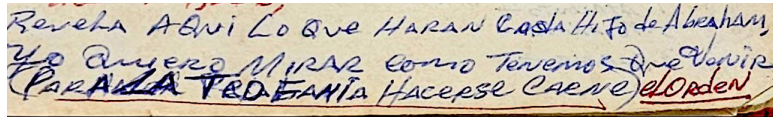 Revela AQUi Lo Que HARAN Cada Hijo de Abraham,
Yo Quiero MIRAR como Tenemos Que Venir
(PARA LA TEOFANÍA HACERSE CARNE) el ORDEN